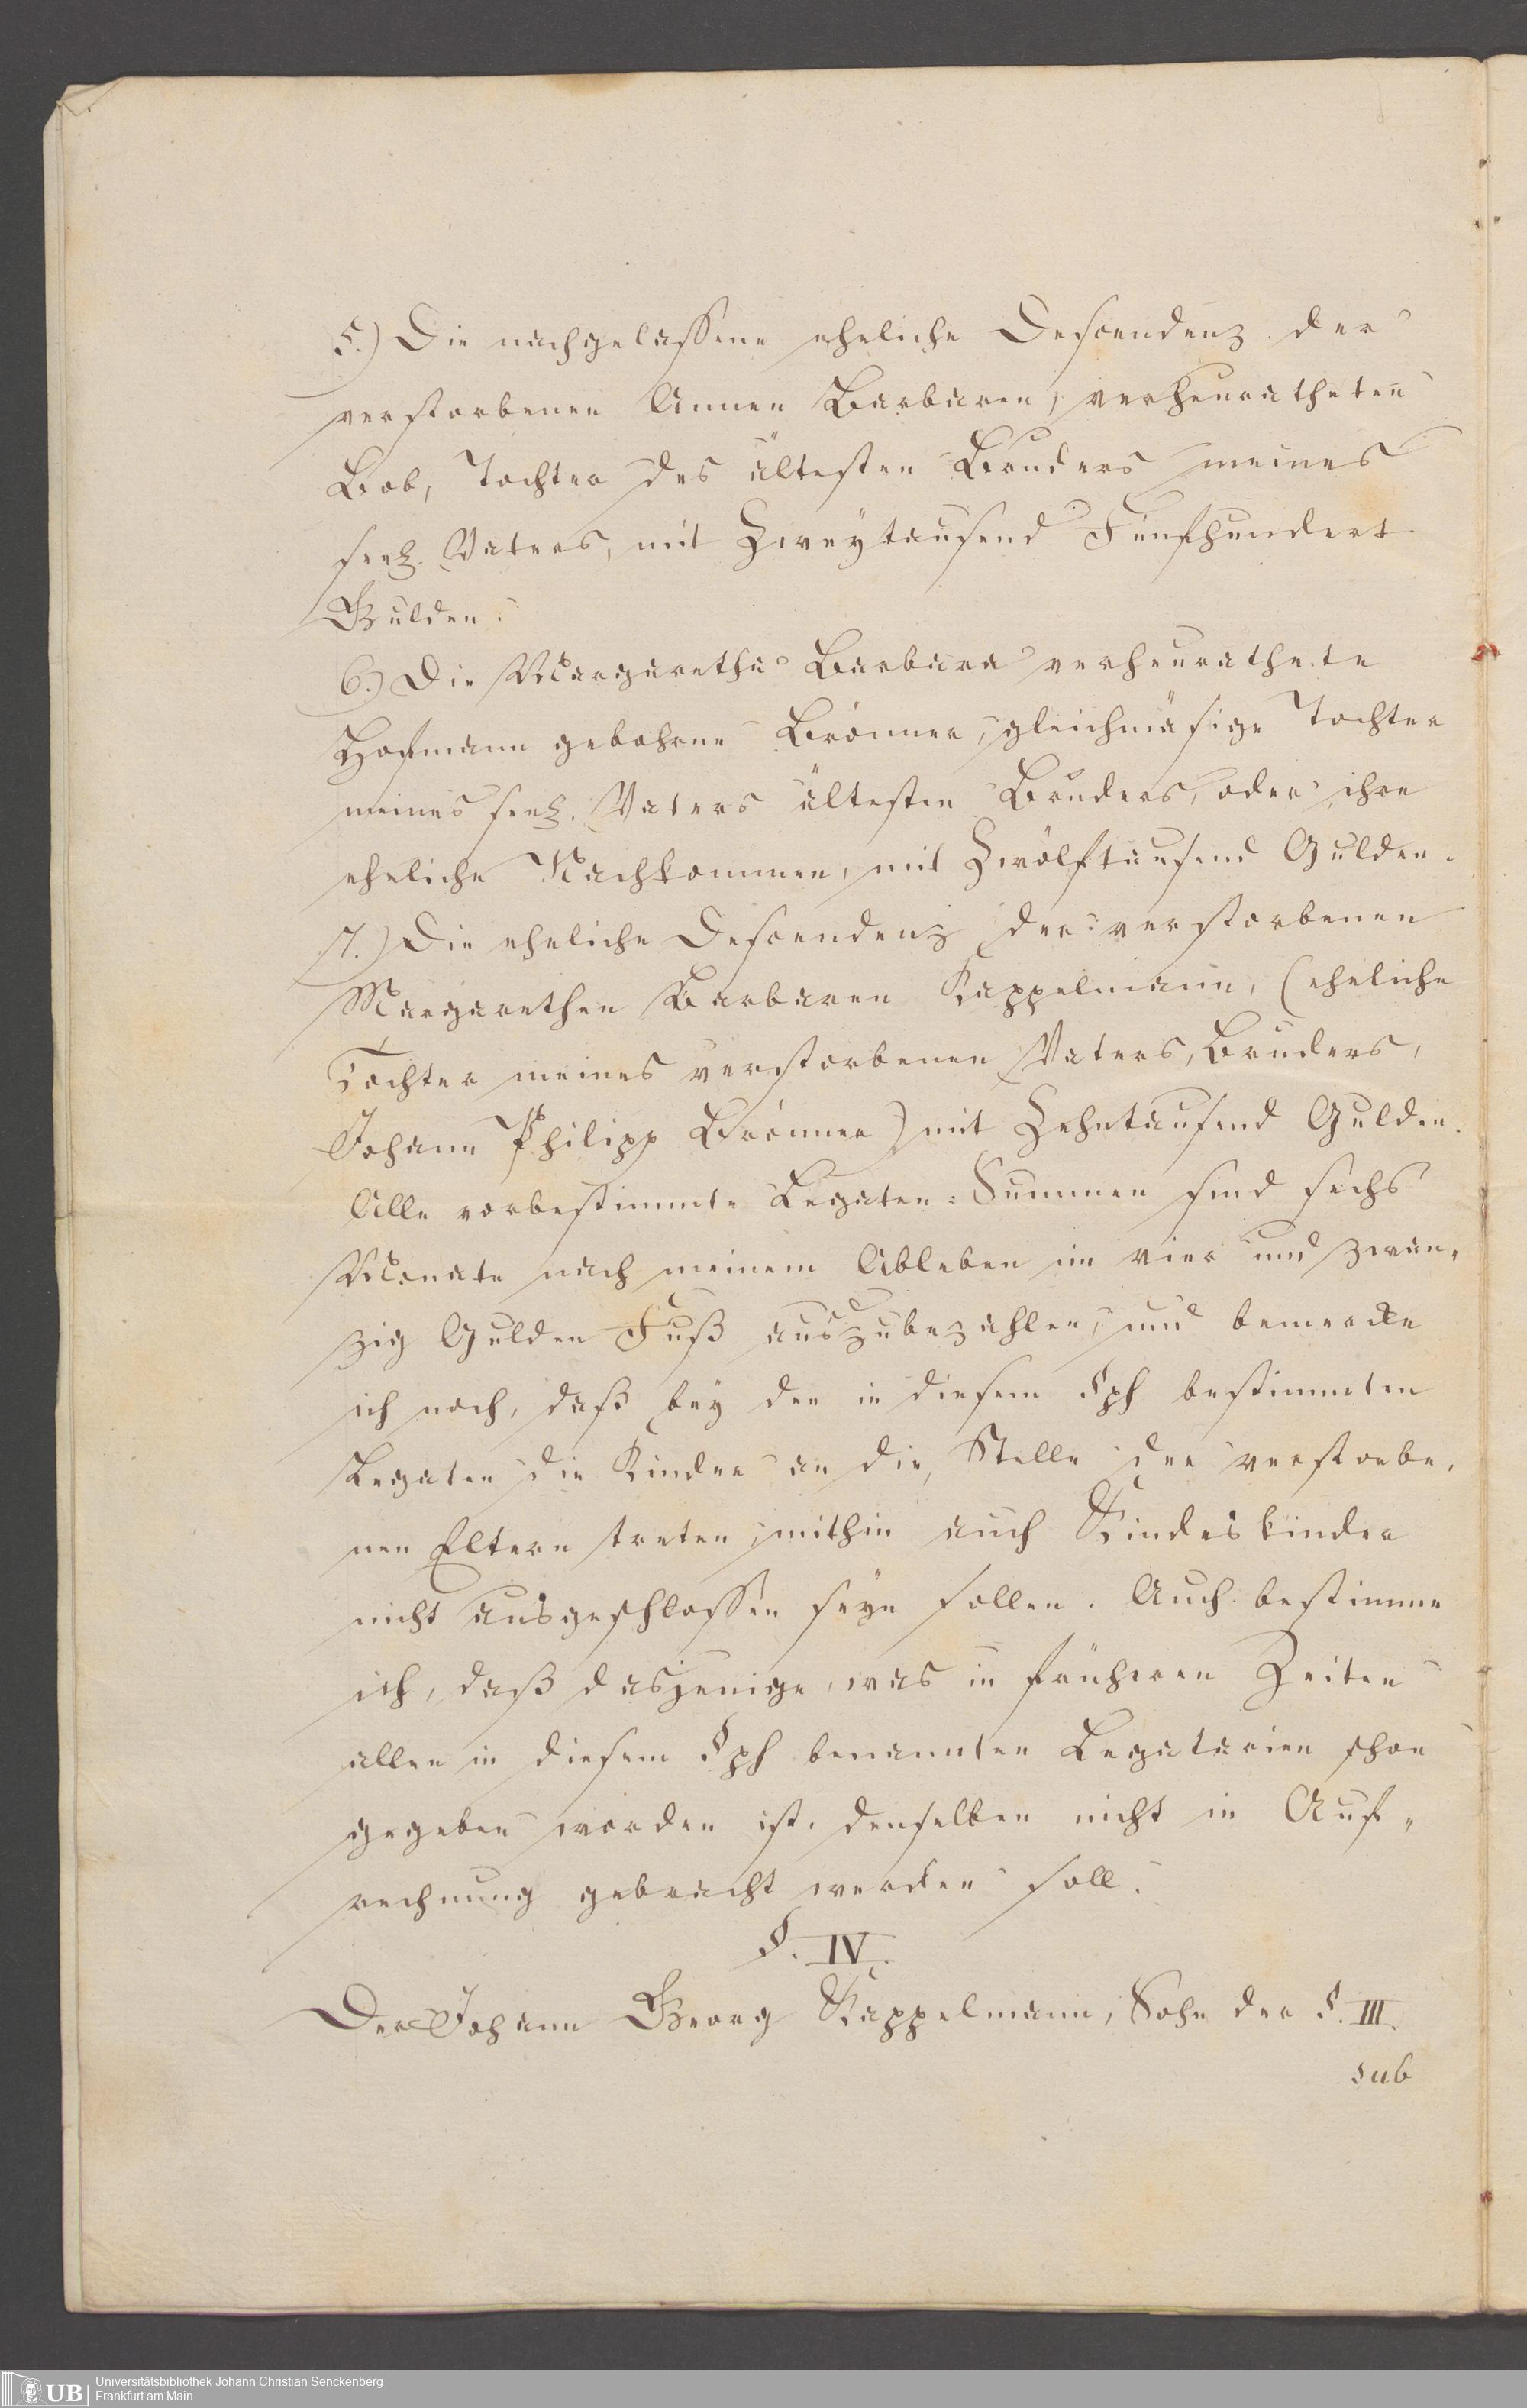 5.) Die nachgelassene eheliche Descendenz der
verstorbenen Annen Barbaren, verheuratheten
Bob, Tochter des ältesten Bruders meines
seel. Vaters, mit Zweÿtausend Fünfhundert
Gulden.
6.) Die Margaretha Barbara verheurathete
Hofmann gebohrne Brönner, gleichmäsige Tochter
meines seel. Vaters ältesten Bruders, oder ihre
eheliche Nachkommen, mit Zwölftausend Gulden.
7.) Die eheliche Descendenz der verstorbenen
Margarethen Barbaren Kappelmann, (eheliche
Tochter meines verstorbenen Vaters, Bruders,
Johann Philipp Brönner) mit Zehntausend Gulden.
Alle vorbestimmte Legaten-Summen sind sechs
Monate nach meinem Ableben im vier und zwan-
zig Gulden Fuß auszubezahlen, und bemercke
ich noch, daß beÿ den in diesem §ph bestimmten
Legaten die Kinder an die Stelle der verstorbe-
nen Eltern treten, mithin auch Kindeskinder
nicht ausgeschlossen seÿn sollen. Auch bestimme
ich, daß dasjenige, was in früheren Zeiten
allen in diesem §ph benannten Legatarien schon
gegeben worden ist, denselben nicht in Auf-
rechnung gebracht werden soll.
§. IV.
Der Johann Georg Kappelmann, Sohn der §. III.
sub
UB
Universitätsbibliothek Johann Christian Senckenberg
Frankfurt am Main